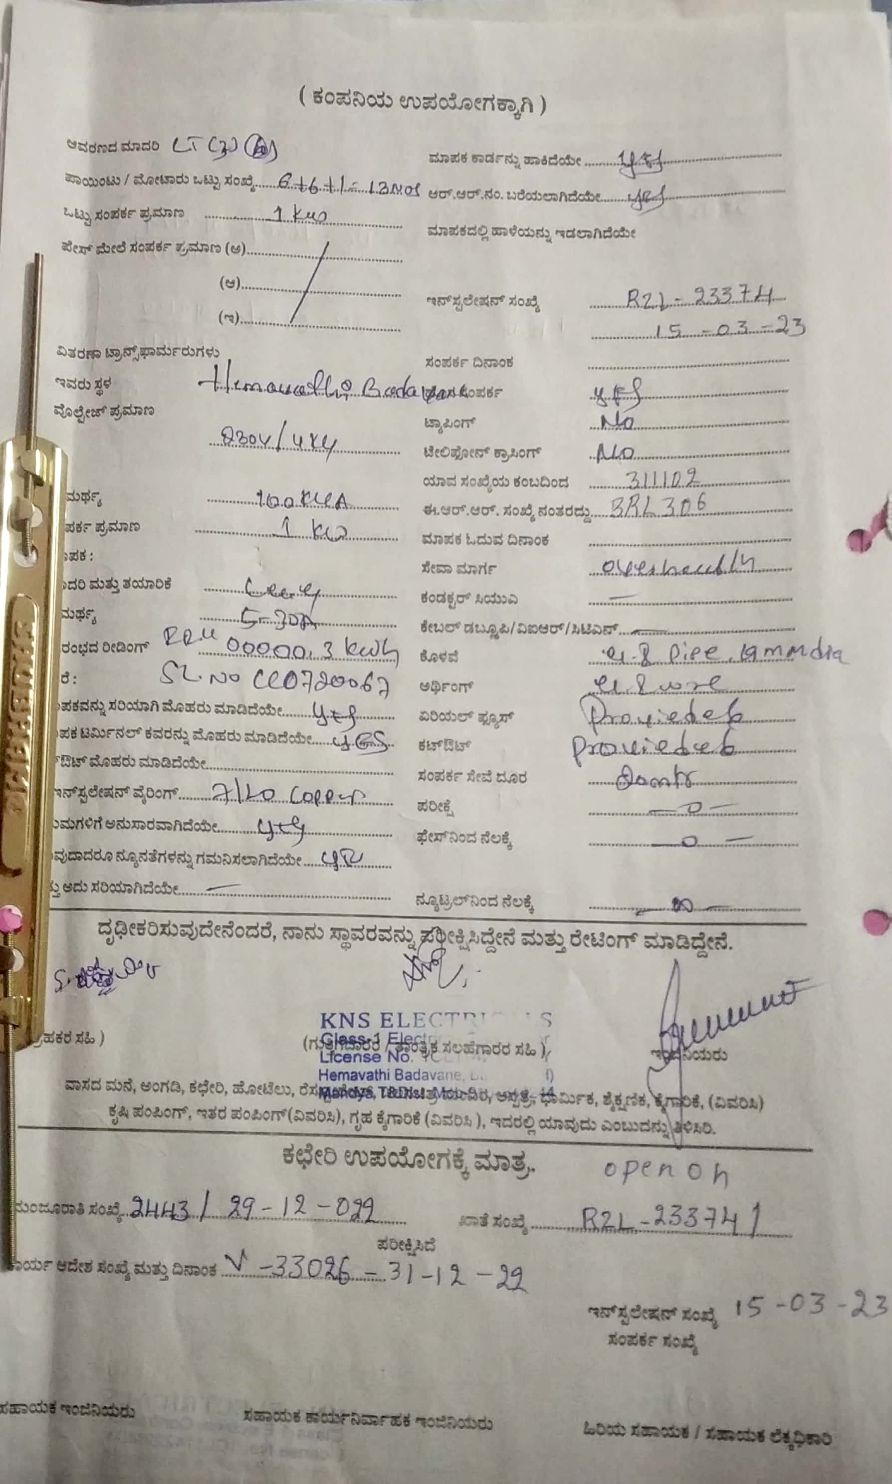 ( ಕಂಪನಿಯ ಉಪಯೋಗಕ್ಕಾಗಿ )
ಆವರಣದ ಮಾದರಿ LT(3)
ಮಾಪಕ ಕಾರ್ಡನ್ನು ಹಾಕಿದೆಯೇ yes
ಪಾಯಿಂಟು / ಮೋಟಾರು ಒಟ್ಟು ಸಂಖ್ಯೆ 6+6+1= 13Nos
ಆರ್.ಆರ್.ನಂ. ಬರೆಯಲಾಗಿದೆಯೇ yes
ಒಟ್ಟು ಸಂಪರ್ಕ ಪ್ರಮಾಣ 1 KW
ಮಾಪಕದಲ್ಲಿ ಹಾಳೆಯನ್ನು ಇಡಲಾಗಿದೆಯೇ
ಫೇಸ್ ಮೇಲೆ ಸಂಪರ್ಕ ಪ್ರಮಾಣ (ಅ)
(ಆ)
(ಇ)
ಇನ್‌ಸ್ಟಲೇಷನ್ ಸಂಖ್ಯೆ R2L-23374
15-03-23
ವಿತರಣಾ ಟ್ರಾನ್ಸ್‌ಫಾರ್ಮರುಗಳು
ಸಂಪರ್ಕ ದಿನಾಂಕ
ಇವರು ಸ್ಥಳ Hemavathi Badavane
ಸಂಪರ್ಕ yes
ವೋಲ್ಟೇಜ್ ಪ್ರಮಾಣ
230V/
ಟ್ಯಾಪಿಂಗ್ No
ಟೆಲಿಫೋನ್ ಕ್ರಾಸಿಂಗ್ No
ಯಾವ ಸಂಖ್ಯೆಯ ಕಂಬದಿಂದ 311102
ಮರ್ಥ್ಯ 100KVA
ಈ.ಆರ್.ಆರ್. ಸಂಖ್ಯೆ ನಂತರದ್ದು BRL306
ಪರ್ಕ ಪ್ರಮಾಣ 1 KW
ಮಾಪಕ ಓದುವ ದಿನಾಂಕ
ಾಪಕ :
ಸೇವಾ ಮಾರ್ಗ
ಾದರಿ ಮತ್ತು ತಯಾರಿಕೆ
ಕಂಡಕ್ಟರ್ ಸಿಯುವಿ –
ಮರ್ಥ್ಯ 5-30A
ಕೇಬಲ್ ಡಬ್ಲ್ಯೂಪಿ/ವಿಐಆರ್/ಸಿಟಿಎಸ್ –
ರಂಭದ ರೀಡಿಂಗ್ 00000.3 kwh
ಕೊಳವೆ G.I pipe
ರೆ : SL.No CC0720067
ಅರ್ಥಿಂಗ್ G.I wire
ಪಕವನ್ನು ಸರಿಯಾಗಿ ಮೊಹರು ಮಾಡಿದೆಯೇ yes
ಏರಿಯಲ್ ಫ್ಯೂಸ್ Provieded
ಪಕ ಟರ್ಮಿನಲ್ ಕವರನ್ನು ಮೊಹರು ಮಾಡಿದೆಯೇ yes
ಕಟ್‌ಔಟ್ Provieded
್‌ಔಟ್ ಮೊಹರು ಮಾಡಿದೆಯೇ
ಸಂಪರ್ಕ ಸೇವೆ ದೂರ 20mtr
ಇನ್‌ಸ್ಟಲೇಷನ್ ವೈರಿಂಗ್ 7/20 Copper
ಪರೀಕ್ಷೆ –0–
ುಮಗಳಿಗೆ ಅನುಸಾರವಾಗಿದೆಯೇ yes
ಫೇಸ್‌ನಿಂದ ನೆಲಕ್ಕೆ –0–
ವುದಾದರೂ ನ್ಯೂನತೆಗಳನ್ನು ಗಮನಿಸಲಾಗಿದೆಯೇ
ತ್ತು ಅದು ಸರಿಯಾಗಿದೆಯೇ –
ನ್ಯೂಟ್ರಲ್‌ನಿಂದ ನೆಲಕ್ಕೆ
ದೃಢೀಕರಿಸುವುದೇನೆಂದರೆ, ನಾನು ಸ್ಥಾವರವನ್ನು ಪರೀಕ್ಷಿಸಿದ್ದೇನೆ ಮತ್ತು ರೇಟಿಂಗ್ ಮಾಡಿದ್ದೇನೆ.
KNS ELECTRICALS
Class-1
ರಾಹಕರ ಸಹಿ )
(ಗುತ್ತಿಗೆದಾರರ / ತಾಂತ್ರಿಕ ಸಲಹೆಗಾರರ ಸಹಿ )
ಇಂಜಿನಿಯರು
License No.
Hemavathi Badavane,
Mandya
ವಾಸದ ಮನೆ, ಅಂಗಡಿ, ಕಛೇರಿ, ಹೋಟೆಲು, ಆಸ್ಪತ್ರೆ, ಧಾರ್ಮಿಕ, ಶೈಕ್ಷಣಿಕ, ಕೈಗಾರಿಕೆ, (ವಿವರಿಸಿ)
ಕೃಷಿ ಪಂಪಿಂಗ್, ಇತರ ಪಂಪಿಂಗ್(ವಿವರಿಸಿ), ಗೃಹ ಕೈಗಾರಿಕೆ (ವಿವರಿಸಿ ), ಇದರಲ್ಲಿ ಯಾವುದು ಎಂಬುದನ್ನು ತಿಳಿಸಿರಿ.
ಕಛೇರಿ ಉಪಯೋಗಕ್ಕೆ ಮಾತ್ರ.
open on
ಮಂಜೂರಾತಿ ಸಂಖ್ಯೆ 2443/ 29-12-022
ಖಾತೆ ಸಂಖ್ಯೆ R2L-233741
ಪರೀಕ್ಷಿಸಿದೆ
ಾರ್ಯ ಆದೇಶ ಸಂಖ್ಯೆ ಮತ್ತು ದಿನಾಂಕ V-33026-31-12-22
ಇನ್‌ಸ್ಟಲೇಷನ್ ಸಂಖ್ಯೆ 15-03-23
ಸಂಪರ್ಕ ಸಂಖ್ಯೆ
ಸಹಾಯಕ ಇಂಜಿನಿಯರು
ಸಹಾಯಕ ಕಾರ್ಯನಿರ್ವಾಹಕ ಇಂಜಿನಿಯರು
ಹಿರಿಯ ಸಹಾಯಕ / ಸಹಾಯಕ ಲೆಕ್ಕಾಧಿಕಾರಿ